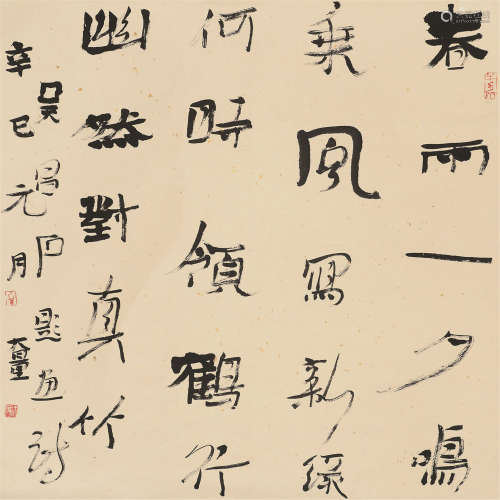 春雨一夕鳴
乘風寫新綠
何時領鶴行
幽然對真竹
吴昌石题画诗
辛巳元月